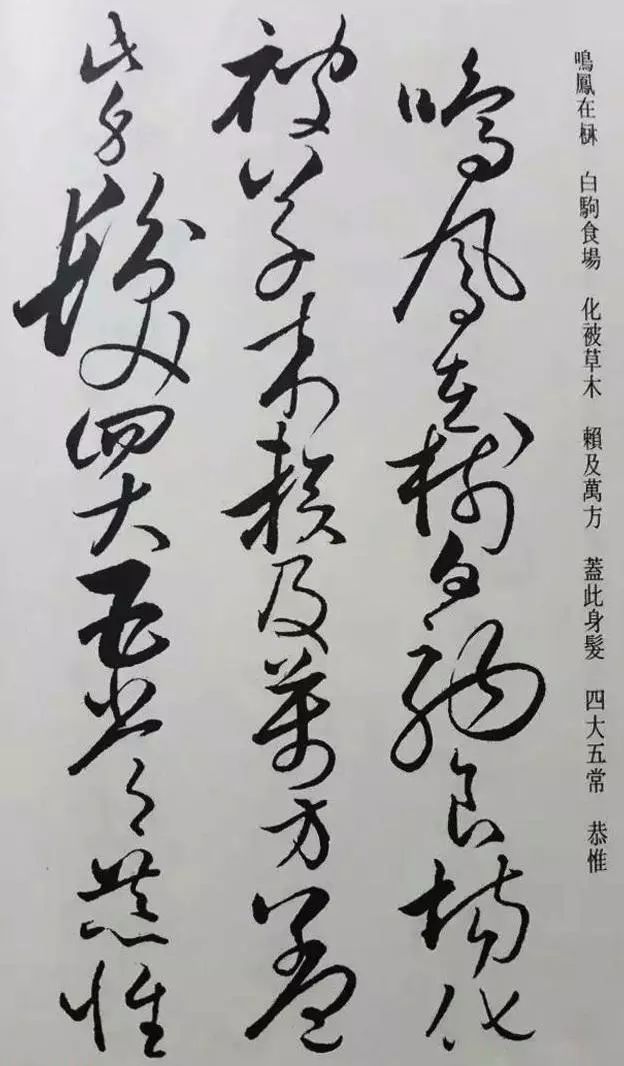 鳴鳳在樹 白駒食場 化被草木 賴及萬方 蓋此身髮 四大五常 恭惟
鳴鳳在樹白駒食場化
被草木賴及萬方蓋
此身髮四大五常恭惟